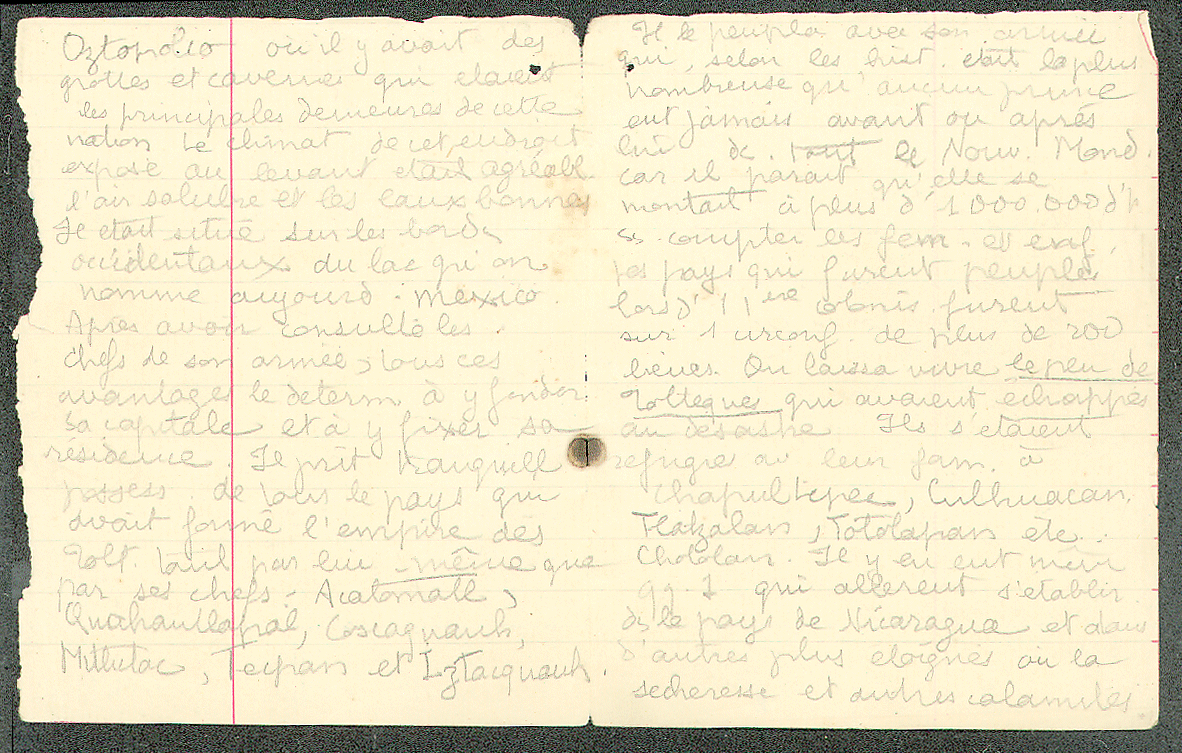 Oztopolco où il y avait des
grottes et cavernes qui étaient
les principales demeures de cette
nation Le climat de cet endroit
exposé au levant était agréabl.
l'air salubre et les eaux bonnes
Il était situé sur les bords
occidentaux du lac qu'on
nomme aujourd. Mexico.
Après avoir consulté les
chefs de son armée, tous ces
avantages le determ. à y fonder
sa capitale et à y fixer sa
résidence. Il prit tranquill
possess. de tous le pays qui
avait formé l'empire des
Tolt. tant par lui même que
par ses chefs - Acatomatl,
Quahuatlapal, Coscaquauh,
Mitliztac, Tecpan et Iztacquauh.
Il le peupla avec son armée
qui, selon les hist. était la plus
nombreuse qu'aucun prince
eut jamais avant ou après
lui de tout le Nouv. Mond.
car il parait qu'elle se
montait à plus d'1000.000 d'h
ss compter les fem. et enf.
les pays qui furent peuplés
lors d' 11ère colonis. furent
sur 1 circonf. de plus de 200
lieues. On laissa vivre le peu de
Toltèques qui avaient échappés
au désastre Ils s'étaient
réfugié av leur fam. à
Chapultepec, Culhuacan,
Tlatzalan, Totolapan etc..
Chololan. Il y en eut même
qq-1 qui allèrent s'établir
ds le pays de Nicaragua et dans
d'autres plus éloignés où la
secheresse et autres calamités